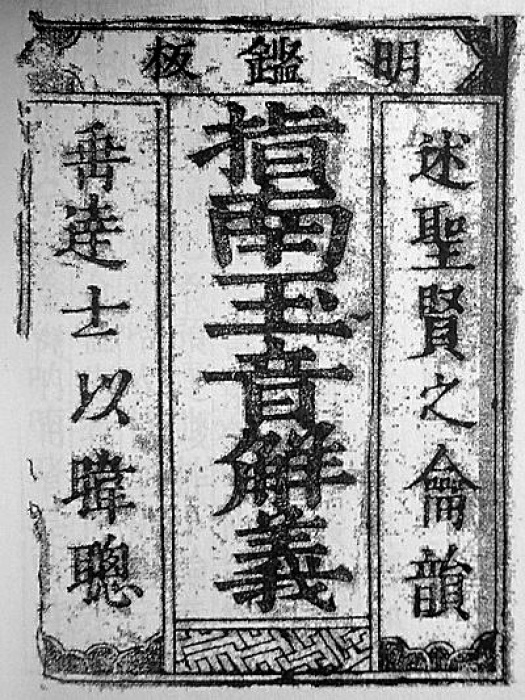 明鑑板
述聖賢之龠韻
指南玉音解義
達士以暐聰